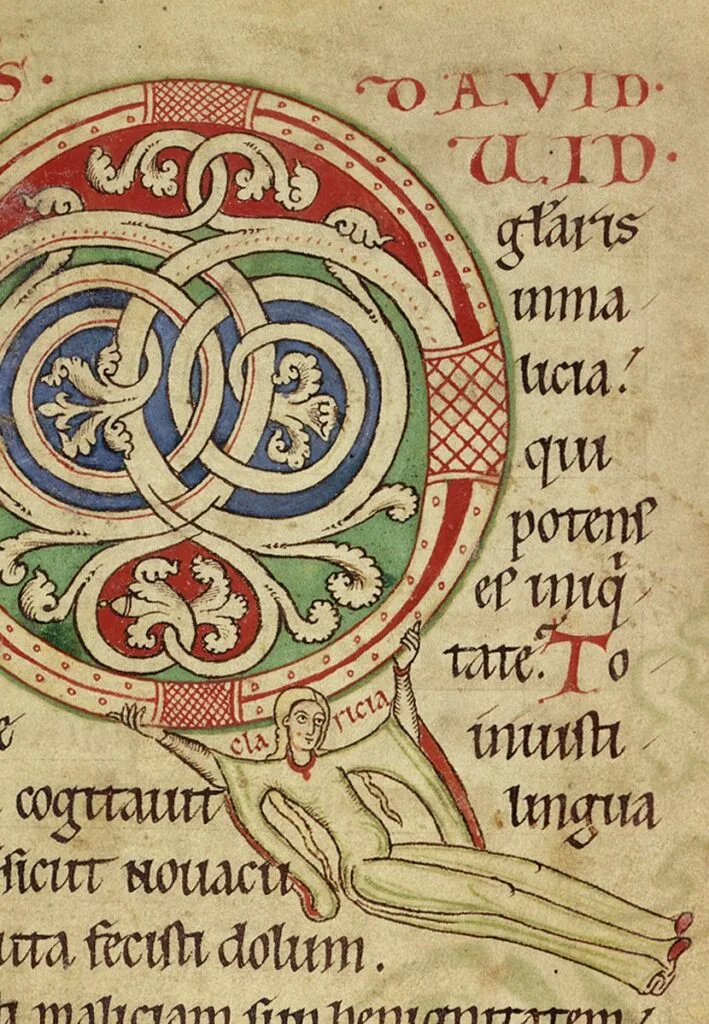 S. DAVID.
UID.
gl̃aris
inma
licia!
qui
potens
es iniqͥ
tate. To
cla ricia
inuisti
cogitauit lingua
sicut nouacu
uta fecisti dolum.
maliciam sup benignitatem